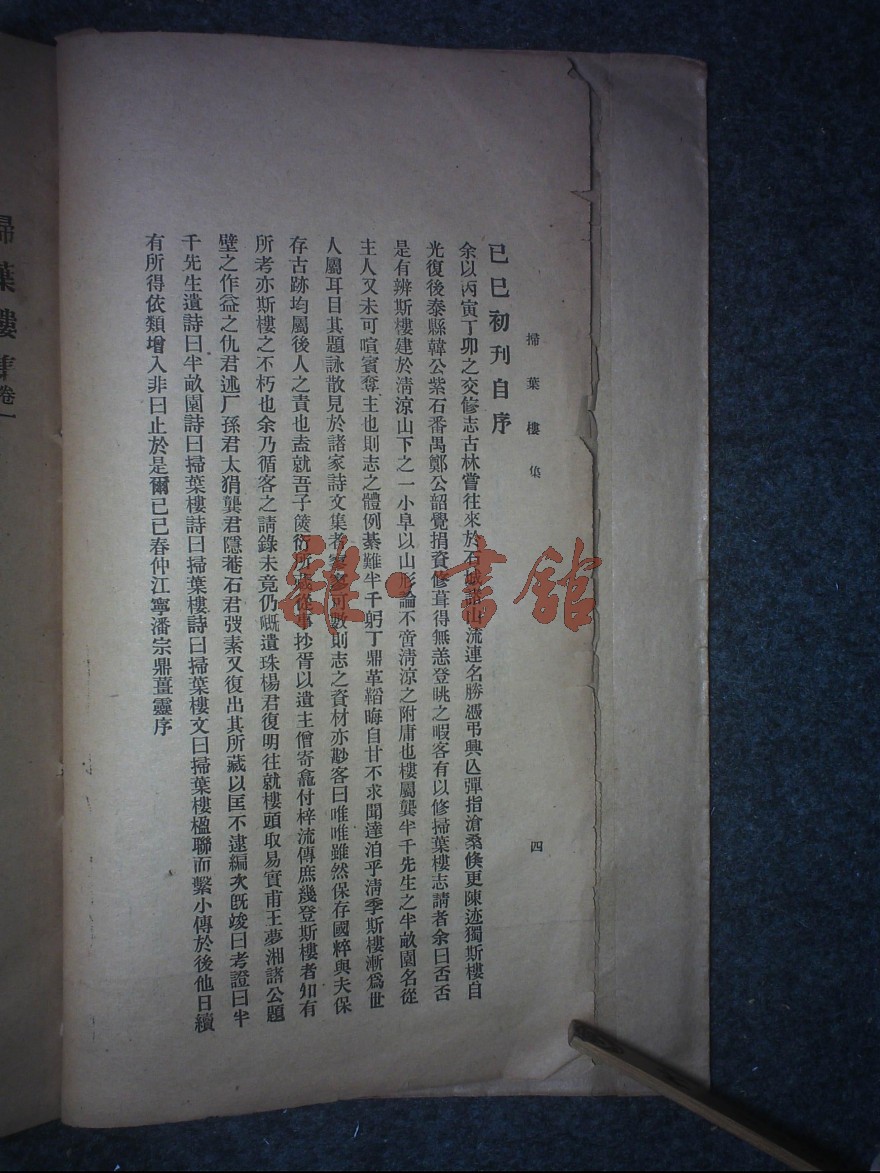 掃葉樓集
四
己巳初刊自序
余以丙寅丁卯之交修志古林嘗往來於石城諸山流連名勝憑弔興亾彈指滄桑倏更陳迹獨斯樓自
光復後泰縣韓公紫石番禺鄭公韶覺捐資修葺得無恙登眺之暇客有以修掃葉樓志請者余曰否否
是有辨斯樓建於淸涼山下之一小阜以山形論不啻淸涼之附庸也樓屬龔半千先生之半畝園名從
主人又未可喧賓奪主也則志之體例綦難半千躬丁鼎革韜晦自甘不求聞達洎乎淸季斯樓漸爲世
人屬耳目其題詠散見於諸家詩文集者寥寥可數則志之資材亦尠客曰唯唯雖然保存國粹與夫保
存古跡均屬後人之責也盍就吾子篋衍所藏從事抄胥以遺主僧寄龕付梓流傳庶幾登斯樓者知有
所考亦斯樓之不朽也余乃循客之請錄未竟仍嘅遺珠楊君復明往就樓頭取易實甫王夢湘諸公題
壁之作益之仇君述厂孫君太狷龔君隱菴石君弢素又復出其所藏以匡不逮編次旣竣曰考證曰半
千先生遺詩曰半畝園詩曰掃葉樓詩曰掃葉樓詩曰掃葉樓文曰掃葉樓楹聯而繫小傳於後他日續
有所得依類增入非曰止於是爾己巳春仲江寧潘宗鼎薑靈序
掃葉樓集卷一
雜·書館